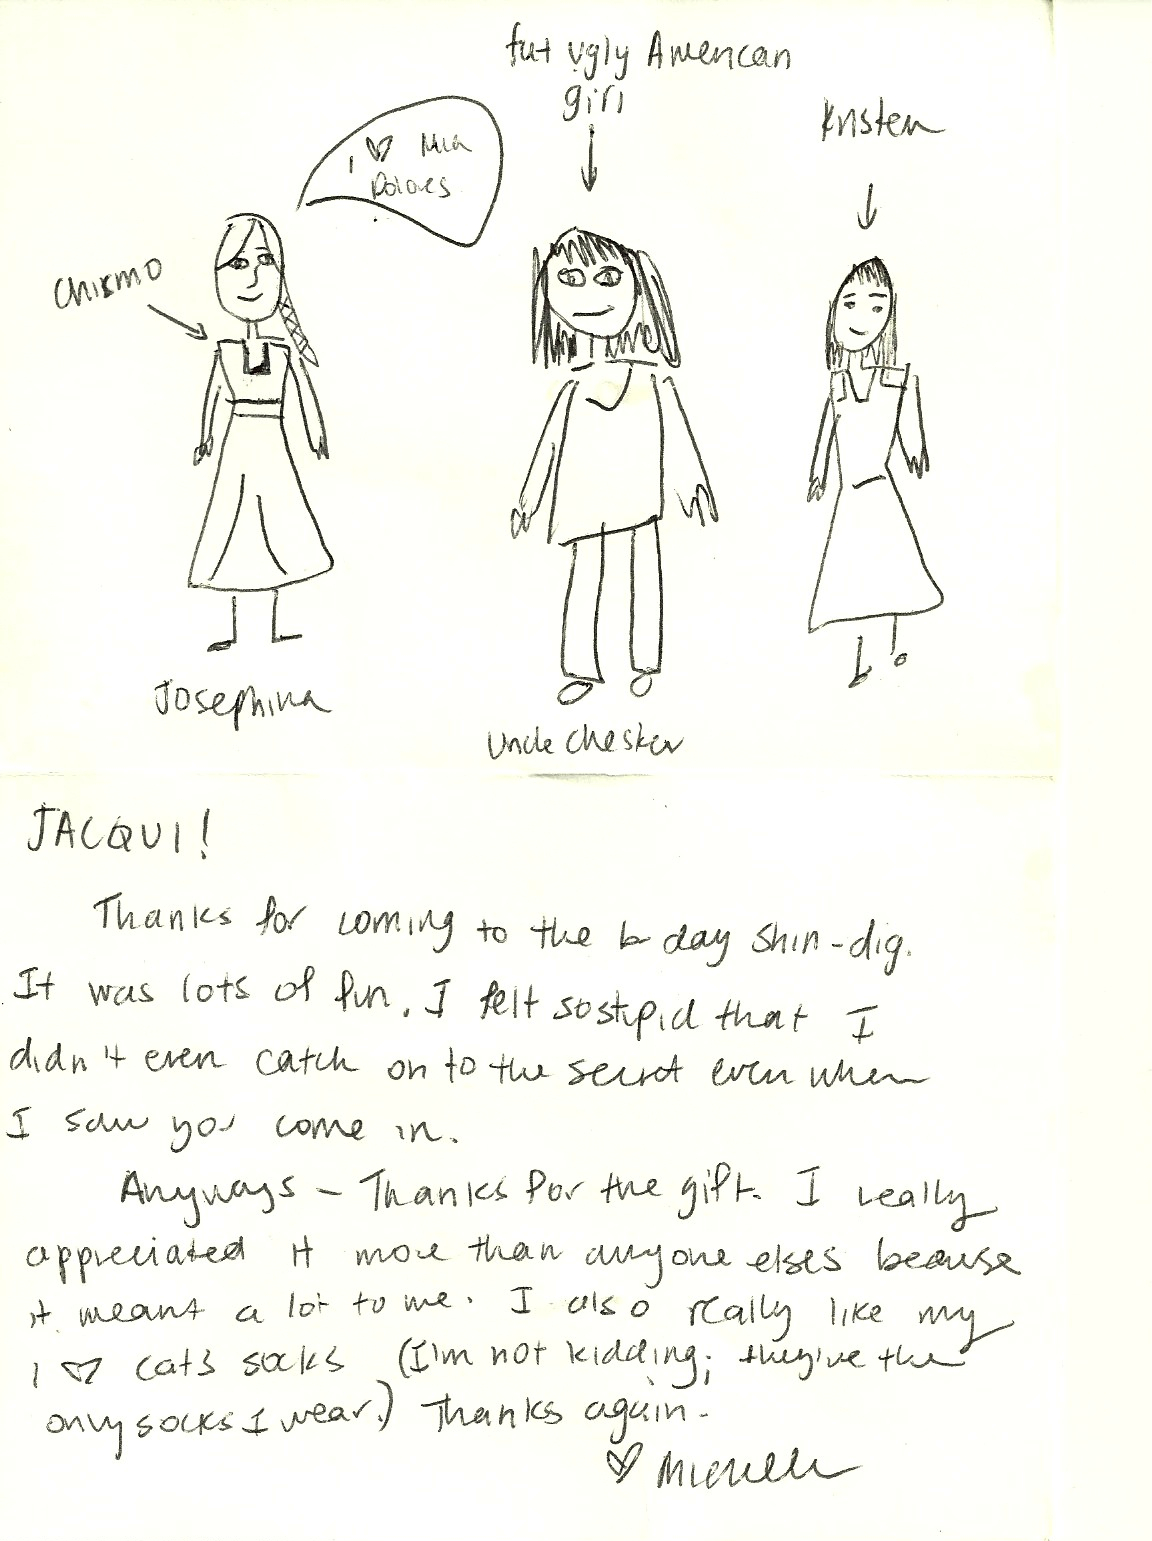 fat ugly American
girl
Kristen
I ♥ Mia
Dolores
Chismo
Josephina
Uncle Chester
JACQUI!
Thanks for coming to the b-day shin-dig.
It was lots of fun. I felt so stupid that I
didn't even catch on to the secret even when
I saw you come in.
Anyways – Thanks for the gift. I really
appreciated it more than anyone elses because
it meant a lot to me. I also really like my
I ♥ cats socks (I'm not kidding; they're the
only socks I wear.) Thanks again.
♥ Michelle